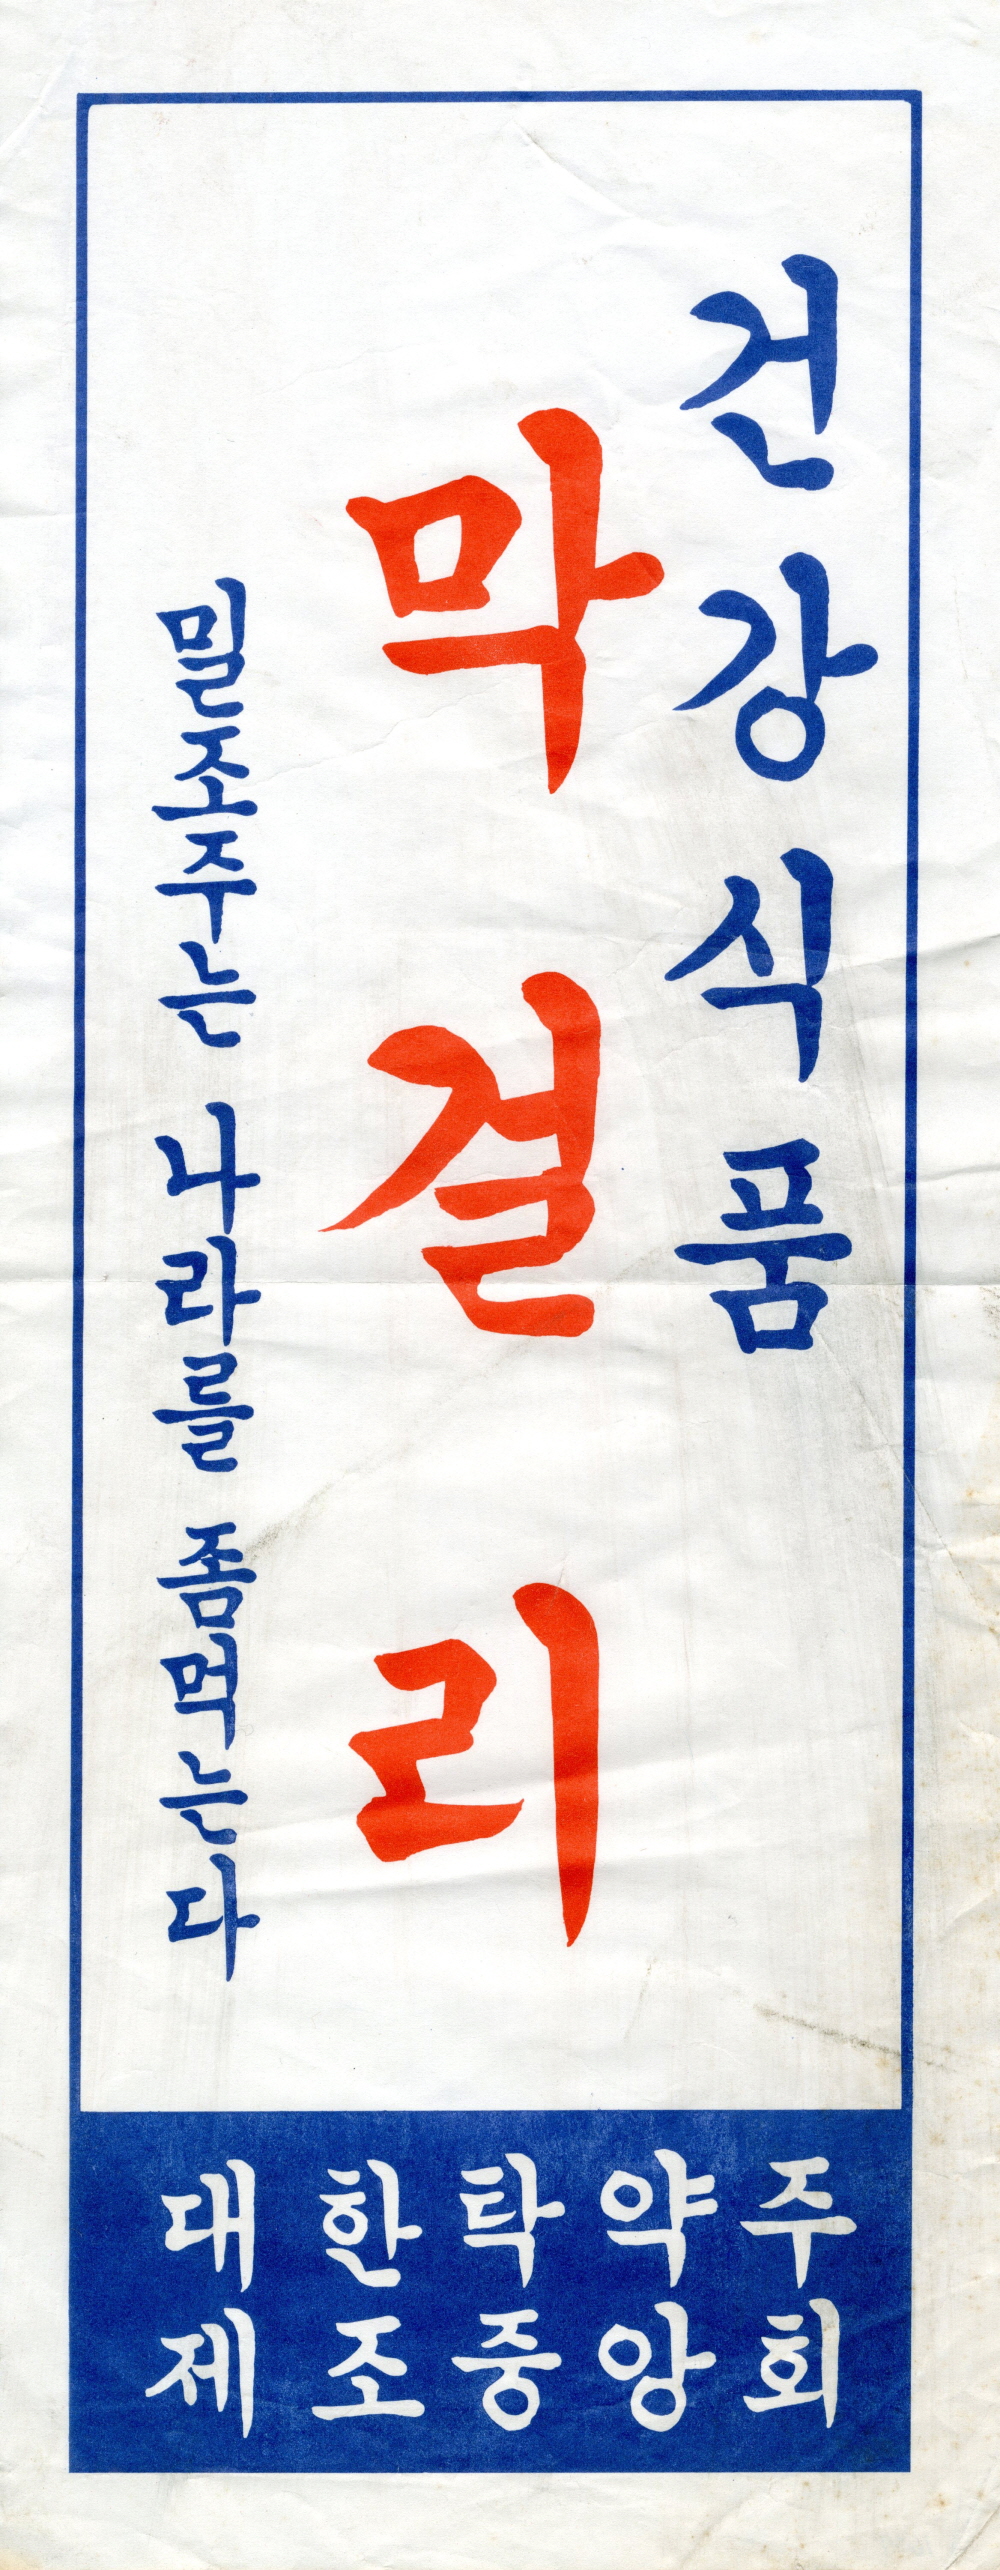 건강식품
막걸리
밀조주는 나라를 좀먹는다
대한탁약주
제조중앙회